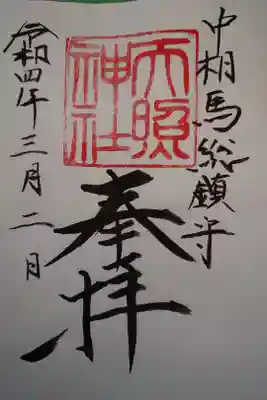 中相馬総鎮守
奉拝
天照
神社
令和四年三月二日